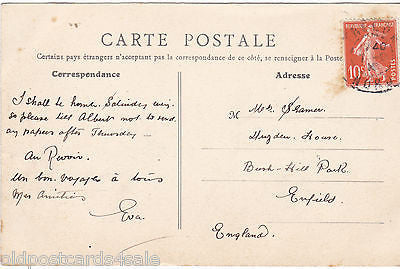 CARTE POSTALE
Certains pays étrangers n'acceptant pas la correspondance de ce côté, se renseigner à la Poste
Correspondance
I shall be home
so please tell Albert not to send
any papers after Thursday -
Au Revoir.
Un bon voyage à tous
Mes Amitiés
Eva.
Adresse
M Mrs
House.
Bush Hill Park
Enfield
England.
REPUBLIQUE FRANÇAISE
10c
POSTES
oldpostcards4sale